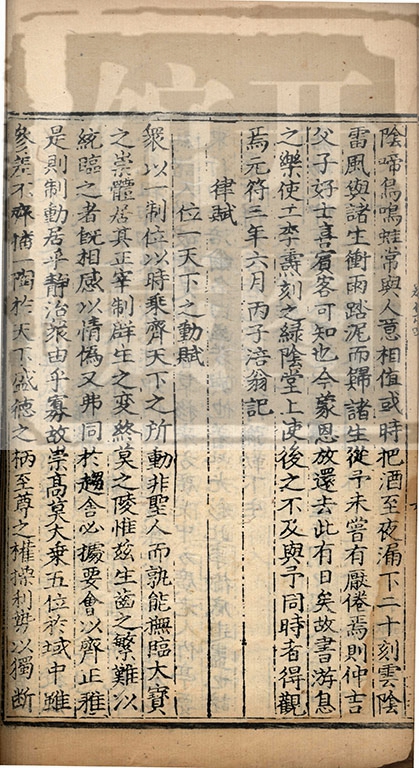 陰啼鳥鳴蛙常與人意相值或時把酒至夜漏下二十刻雲陰
雷風與諸生衝雨踏泥而歸諸生從予未嘗有厭倦焉則仲吉
父子好士喜賓客可知也今蒙恩放還去此有日矣故書游息
之樂使工李壽刻之綠陰堂上使後之不及與予同時者得觀
焉元符三年六月丙子涪翁記
律賦
位一天下之動賦
衆以一制位以時乘齊天下之所動非聖人而孰能撫臨大寶
之崇體居其正宰制群生之變終莫之陵惟玆生齒之繁難以
統臨之者旣相感以情僞又弗同於趨舍必據要會以齊正雅
是則制動居乎靜治衆由乎寡故崇高莫大乗五位於域中雖
參差不齊懤一陶於天下盛德之柄至尊之權操利勢以獨斷